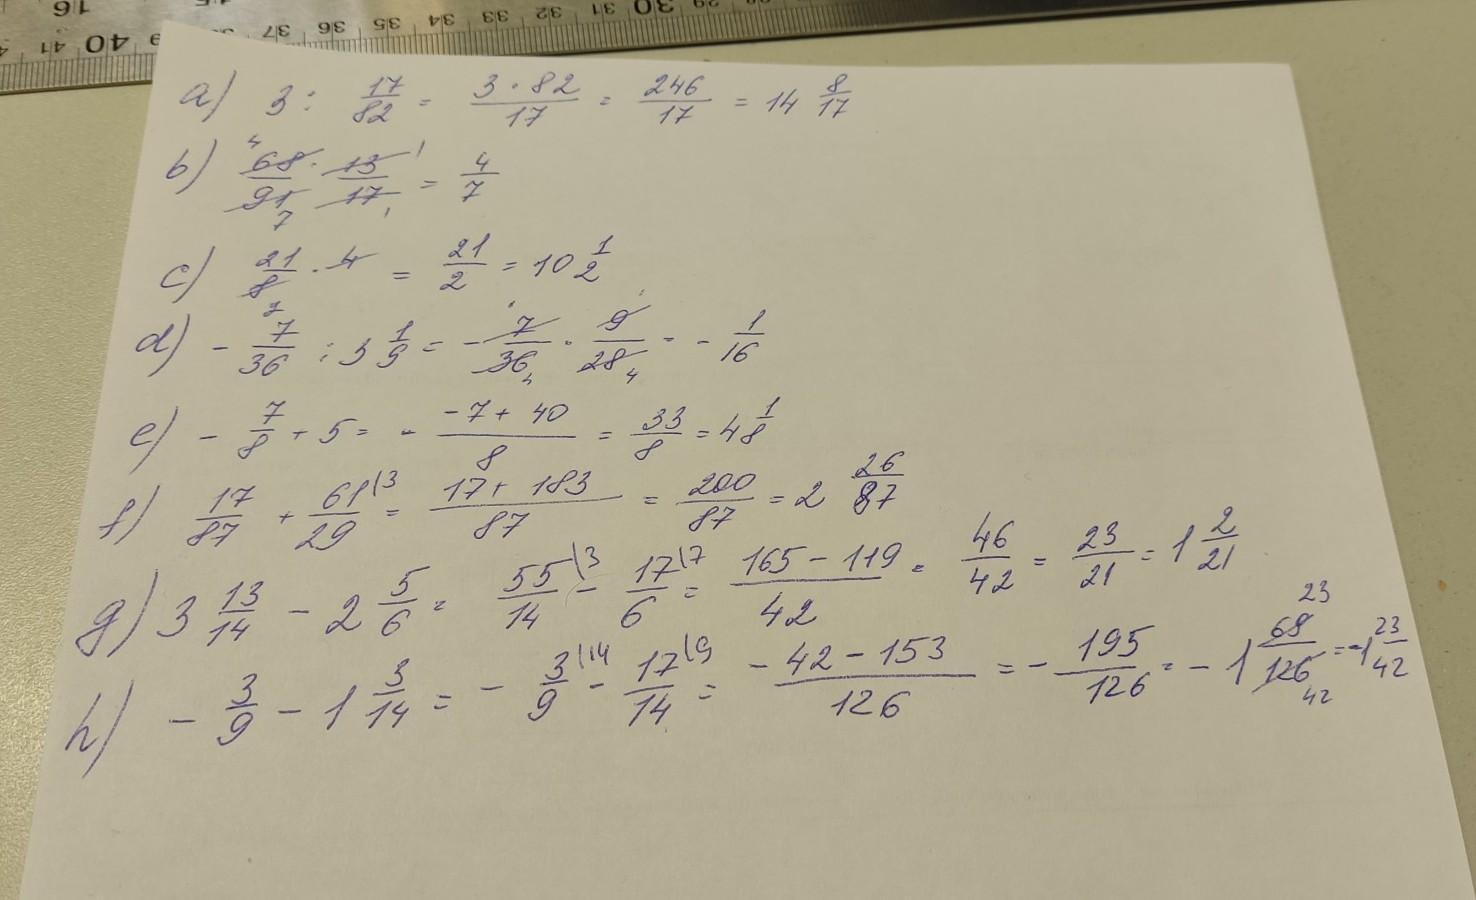 16 15
41 40 37 36 35 34 33 32 31 30 29 28
a) 3 : 17/82 = 3 · 82/17 = 246/17 = 14 8/17
b) 4 68/91 7 · 13/17 1 1 = 4/7
c) 21/8 2 · 4 = 21/2 = 10 1/2
d) - 7/36 : 3 1/9 = - 7/36 4 · 9/28 4 = - 1/16
e) - 7/8 + 5 = - -7 + 40/8 = 33/8 = 4 1/8
f) 17/87 + 61\3/29 = 17 + 183/87 = 200/87 = 2 26/87
g) 3 13/14 - 2 5/6 = 55\3/14 - 17\7/6 = 165 - 119/42 = 46/42 = 23/21 = 1 2/21
h) - 3/9 - 1 3/14 = - 3\14/9 - 17\9/14 = -42 - 153/126 = - 195/126 = - 1 69/126 23 42 = -1 23/42